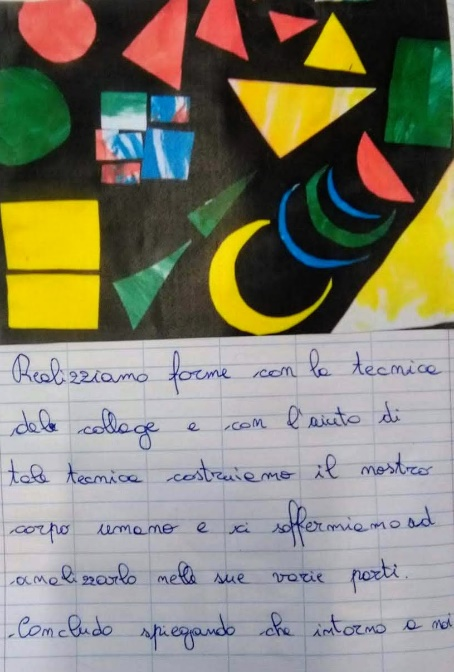 Realizziamo forme con la tecnica
del collage e con l'aiuto di
tale tecnica costruiamo il nostro
corpo umano e ci soffermiamo ad
analizzarlo nelle sue varie parti.
Concludo spiegando che intorno a noi